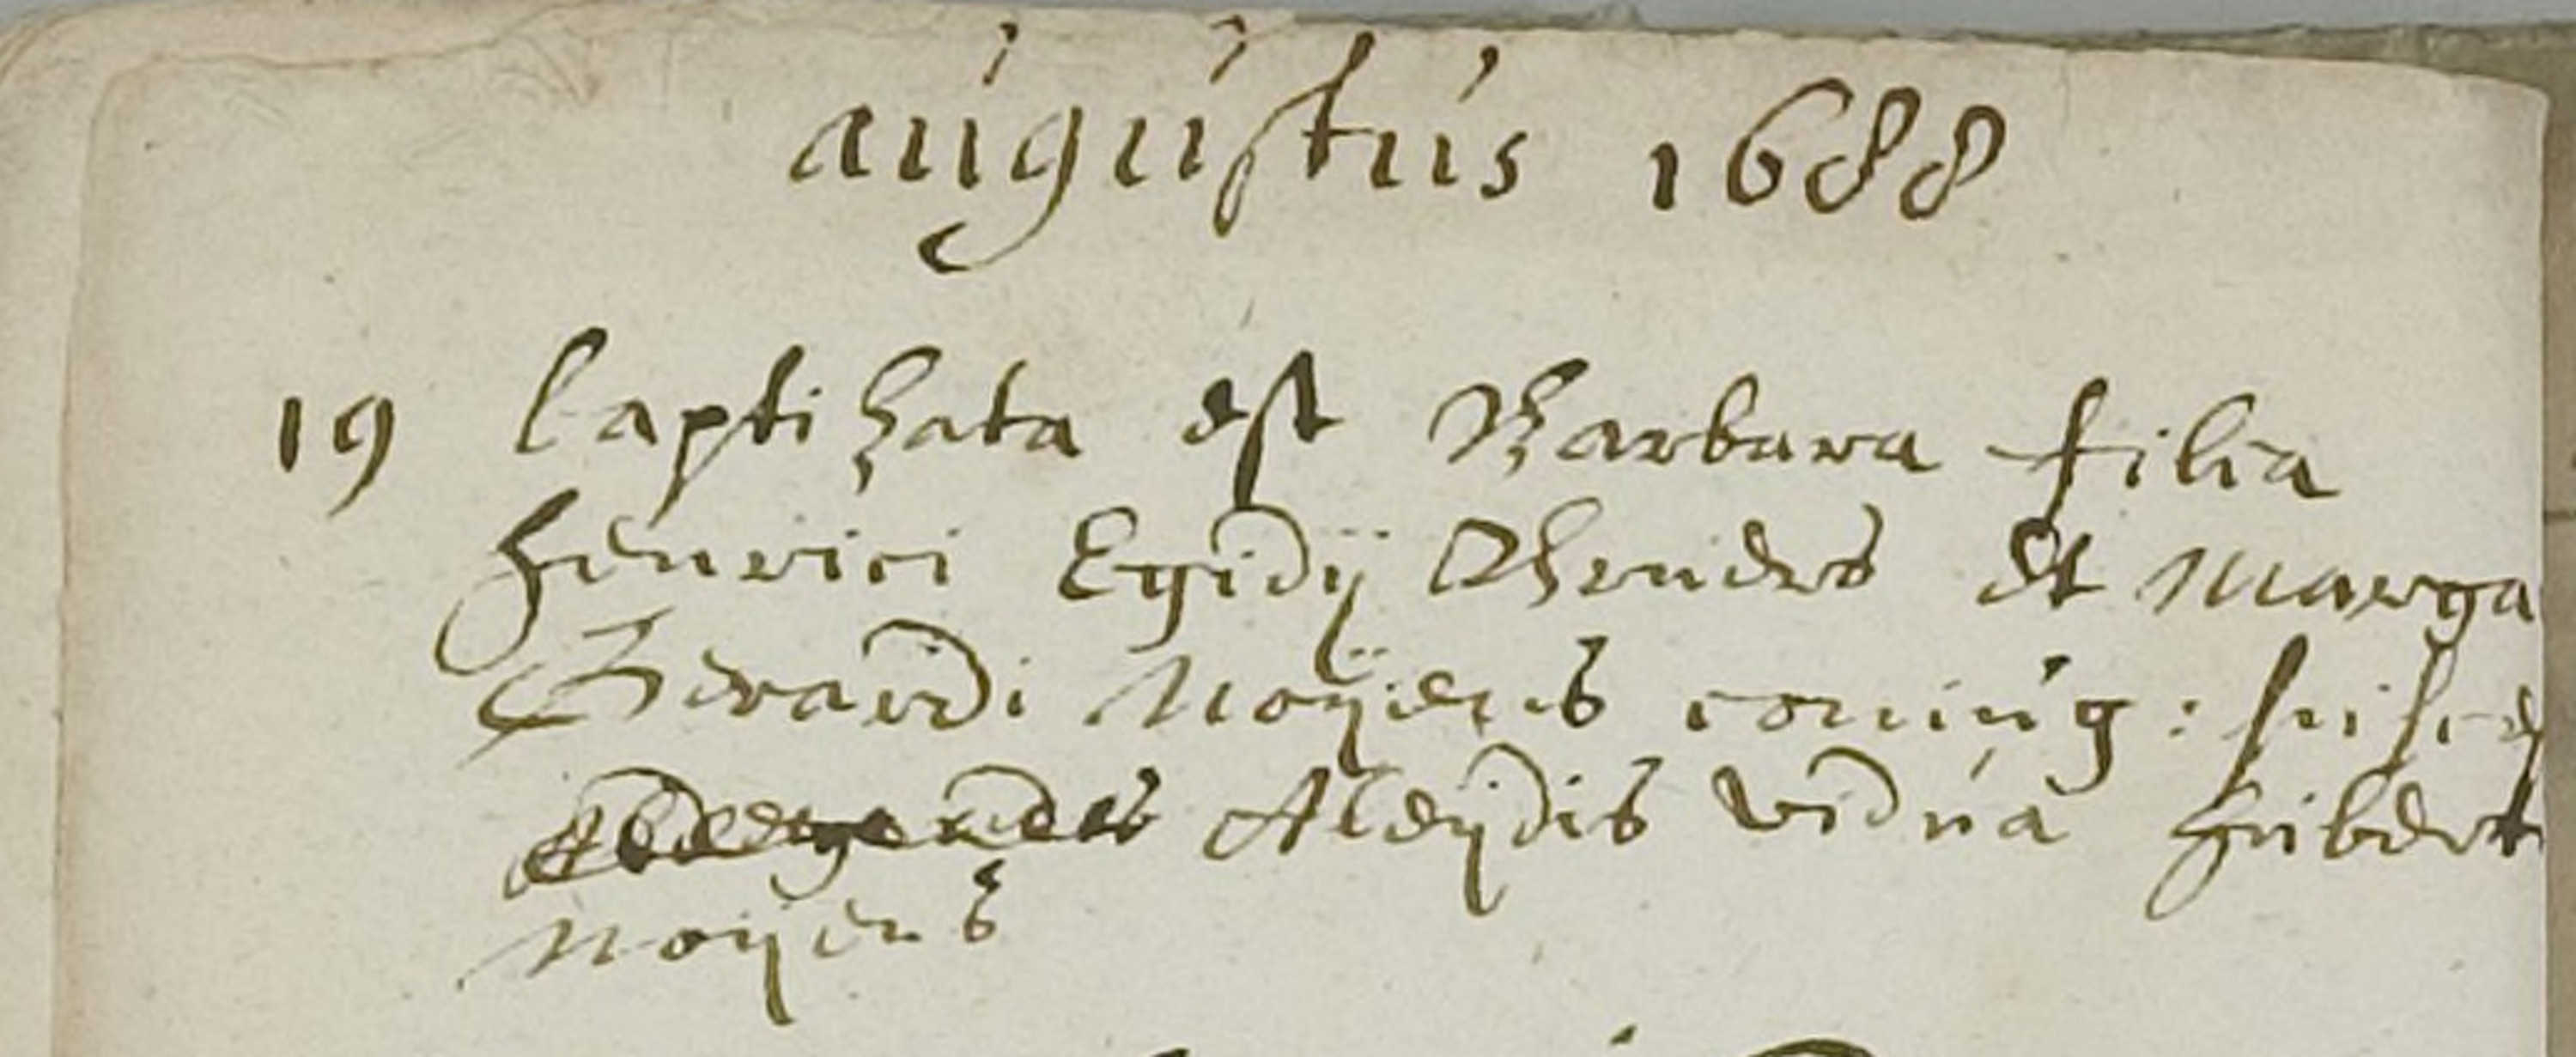 augustus 1688
19 baptizata est Barbara filia
Henrici Egidij et Marga
Gerardi Noÿens coniug: susce
Aleÿdis vidua Huberti
Noÿens